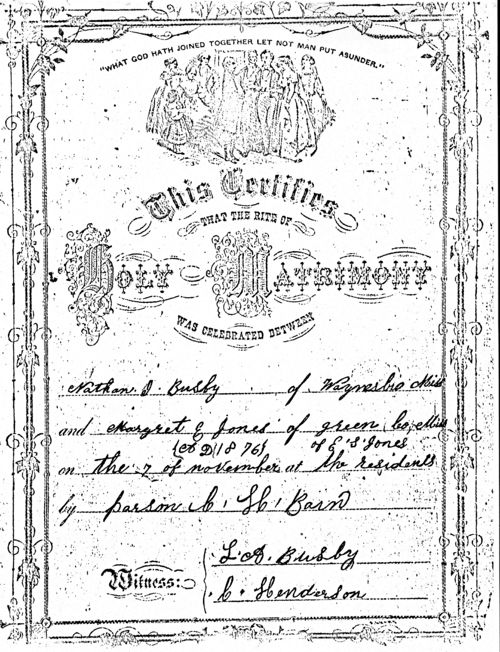 "WHAT GOD HATH JOINED TOGETHER LET NOT MAN PUT ASUNDER."
This Certifies
THAT THE RITE OF
HOLY MATRIMONY
WAS CELEBRATED BETWEEN
Nathan J. Busby of Waynesbio Miss
and Margret E Jones of green Co, Miss
(A D) 1876) of E S Jones
on the 7 of november at the residents
by parson C. H. Bain
L. A. Busby
Witness: C. Henderson